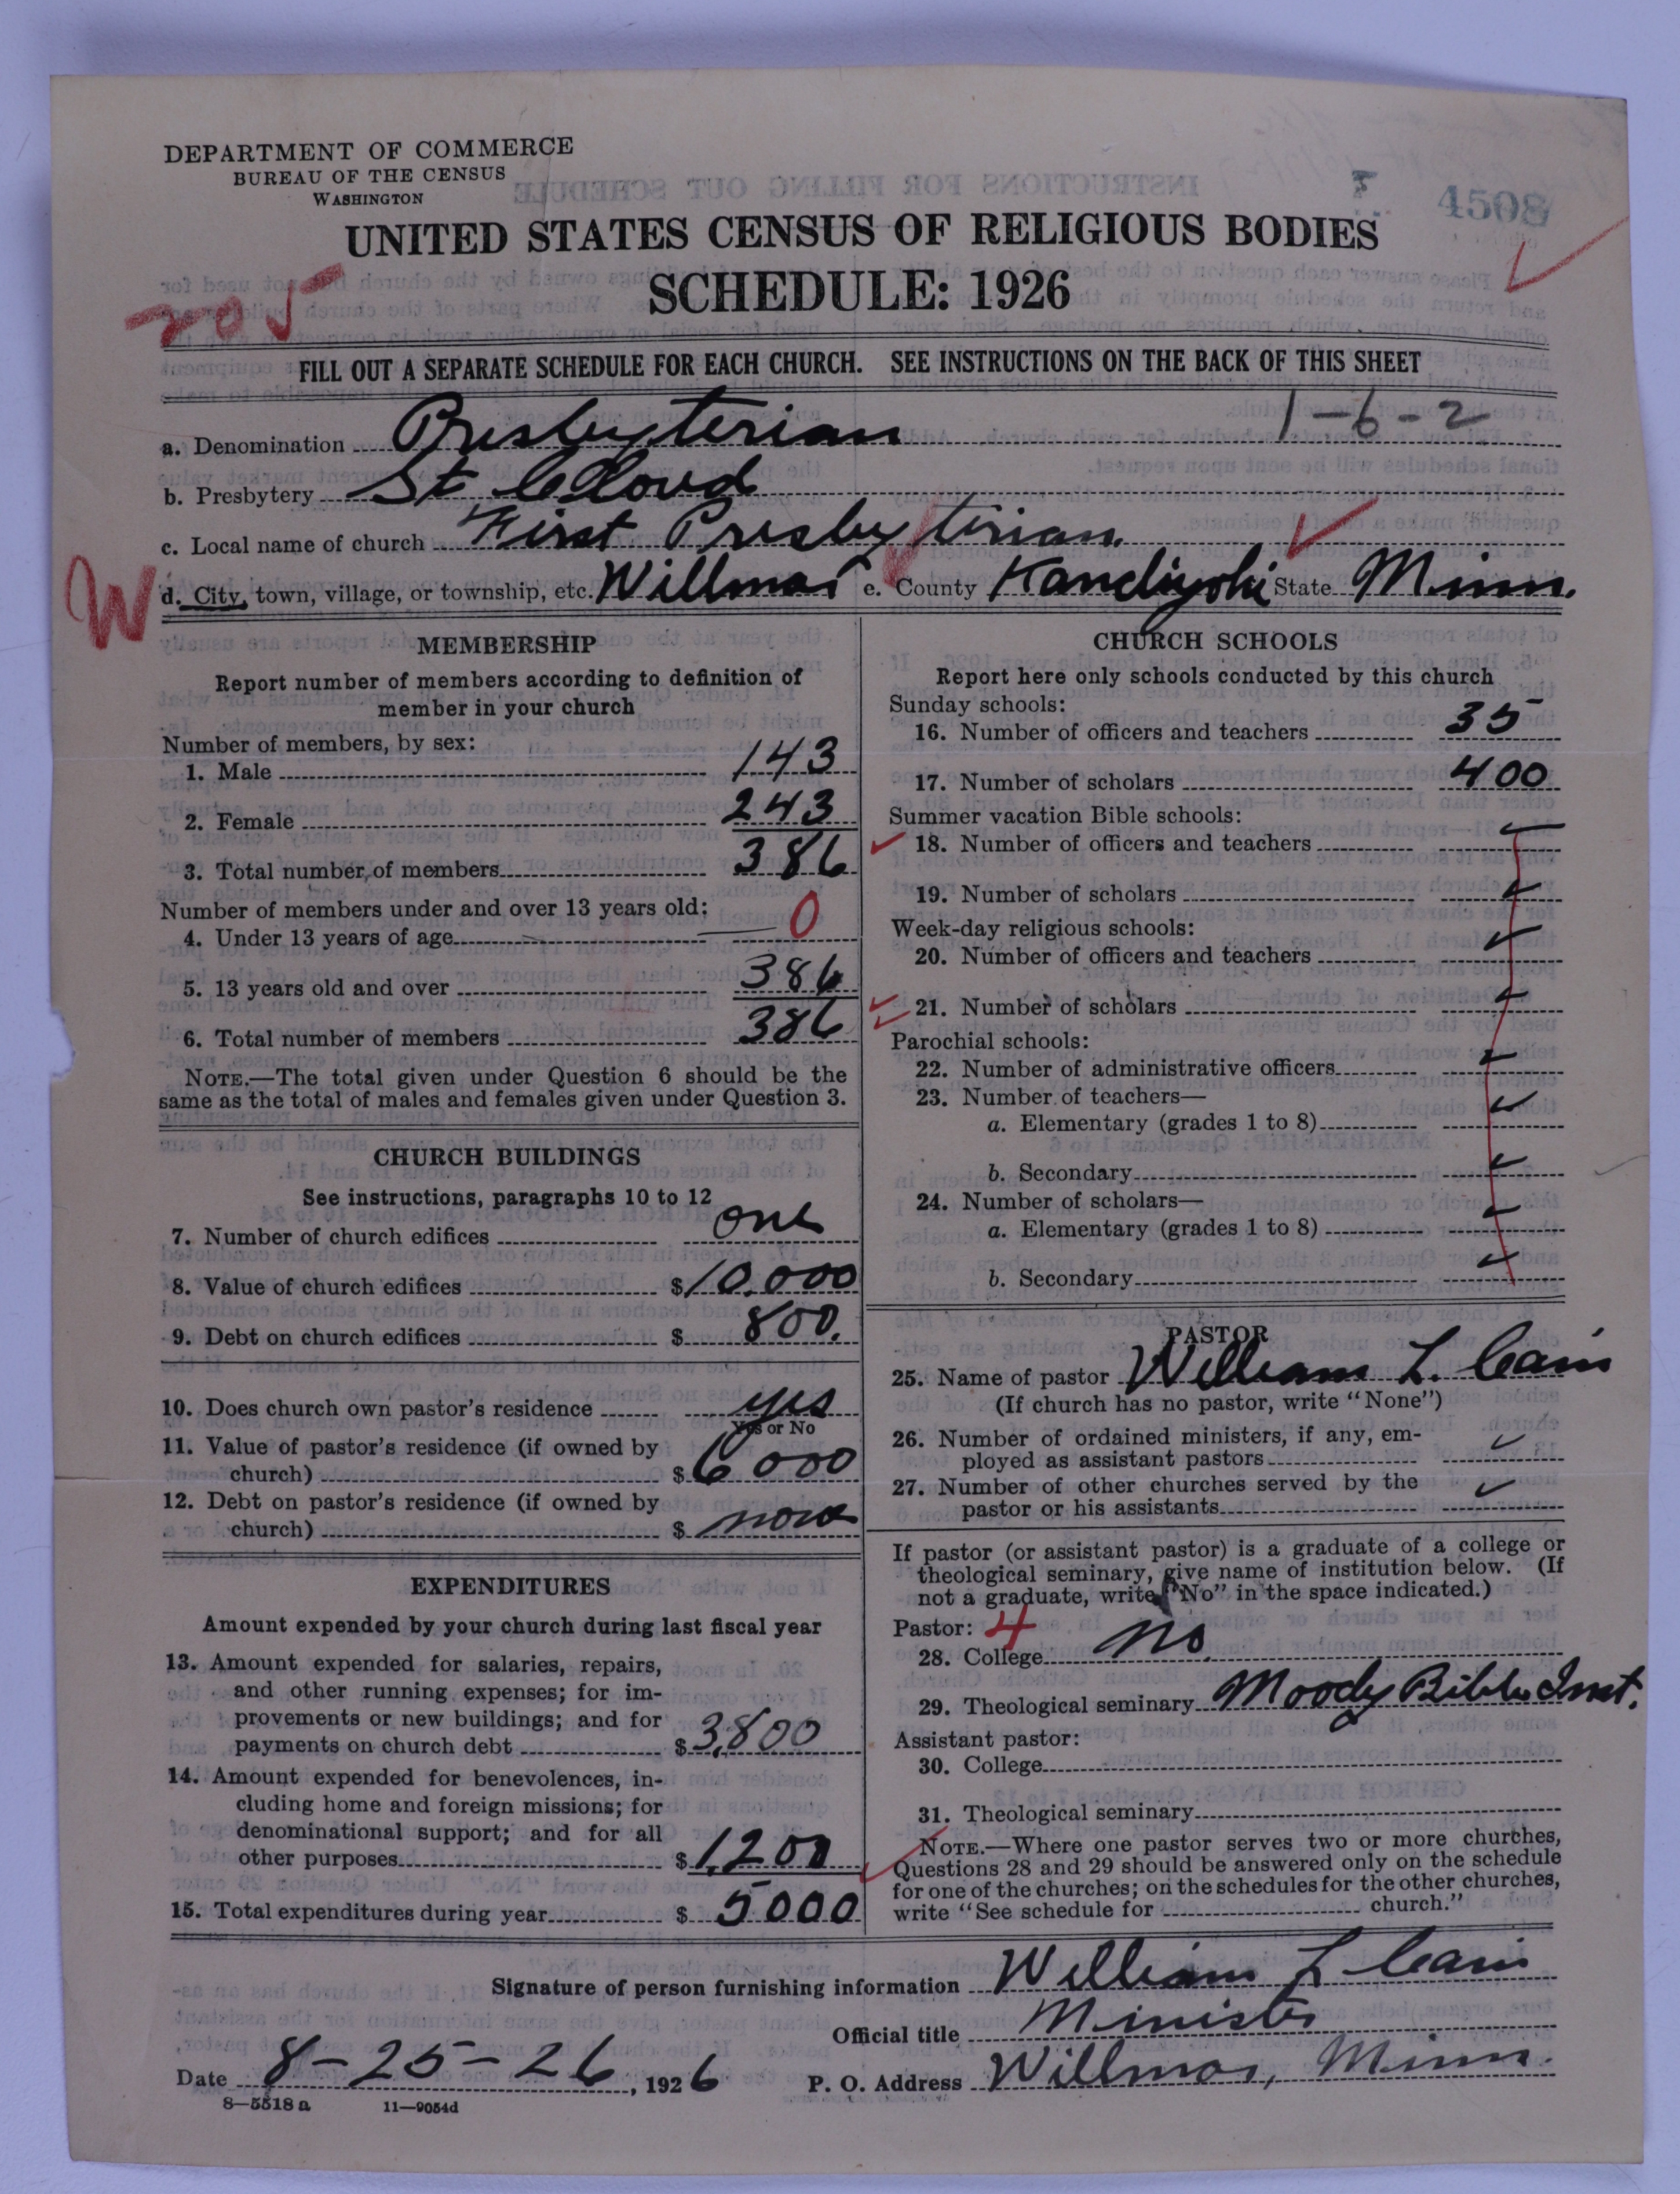 DEPARTMENT OF COMMERCE
BUREAU OF THE CENSUS
WASHINGTON
4508
UNITED STATES CENSUS OF RELIGIOUS BODIES
SCHEDULE: 1926
205
FILL OUT A SEPARATE SCHEDULE FOR EACH CHURCH. SEE INSTRUCTIONS ON THE BACK OF THIS SHEET
1-6-2
a. Denomination Presbyterian
b. Presbytery St Cloud
c. Local name of church First Presbyterian
W d. City, town, village, or township, etc. Willmar e. County Kandiyohi State Minn.
MEMBERSHIP
Report number of members according to definition of
member in your church
Number of members, by sex:
1. Male 143
2. Female 243
3. Total number of members 386
Number of members under and over 13 years old:
4. Under 13 years of age 0
5. 13 years old and over 386
6. Total number of members 386
NOTE.—The total given under Question 6 should be the
same as the total of males and females given under Question 3.
CHURCH BUILDINGS
See instructions, paragraphs 10 to 12
7. Number of church edifices one
8. Value of church edifices $10,000
9. Debt on church edifices $ 800.
10. Does church own pastor's residence yes
Yes or No
11. Value of pastor's residence (if owned by
church) $6000
12. Debt on pastor's residence (if owned by
church) $ none
EXPENDITURES
Amount expended by your church during last fiscal year
13. Amount expended for salaries, repairs,
and other running expenses; for im-
provements or new buildings; and for
payments on church debt $3,800
14. Amount expended for benevolences, in-
cluding home and foreign missions; for
denominational support; and for all
other purposes $1,200
15. Total expenditures during year $ 5000
CHURCH SCHOOLS
Report here only schools conducted by this church
Sunday schools:
16. Number of officers and teachers 35
17. Number of scholars 400
Summer vacation Bible schools:
18. Number of officers and teachers
19. Number of scholars
Week-day religious schools:
20. Number of officers and teachers
21. Number of scholars
Parochial schools:
22. Number of administrative officers
23. Number of teachers—
a. Elementary (grades 1 to 8)
b. Secondary
24. Number of scholars—
a. Elementary (grades 1 to 8)
b. Secondary
PASTOR
25. Name of pastor William L. Cain
(If church has no pastor, write "None")
26. Number of ordained ministers, if any, em-
ployed as assistant pastors
27. Number of other churches served by the
pastor or his assistants
If pastor (or assistant pastor) is a graduate of a college or
theological seminary, give name of institution below. (If
not a graduate, write "No" in the space indicated.)
Pastor: 4
28. College no.
29. Theological seminary Moody Bible Inst.
Assistant pastor:
30. College
31. Theological seminary
NOTE.—Where one pastor serves two or more churches,
Questions 28 and 29 should be answered only on the schedule
for one of the churches; on the schedules for the other churches,
write "See schedule for church."
Signature of person furnishing information William L Cain
Official title Minister
Date 8-25-26, 1926 P. O. Address Willmar, Minn.
8—5518 a 11—9054d